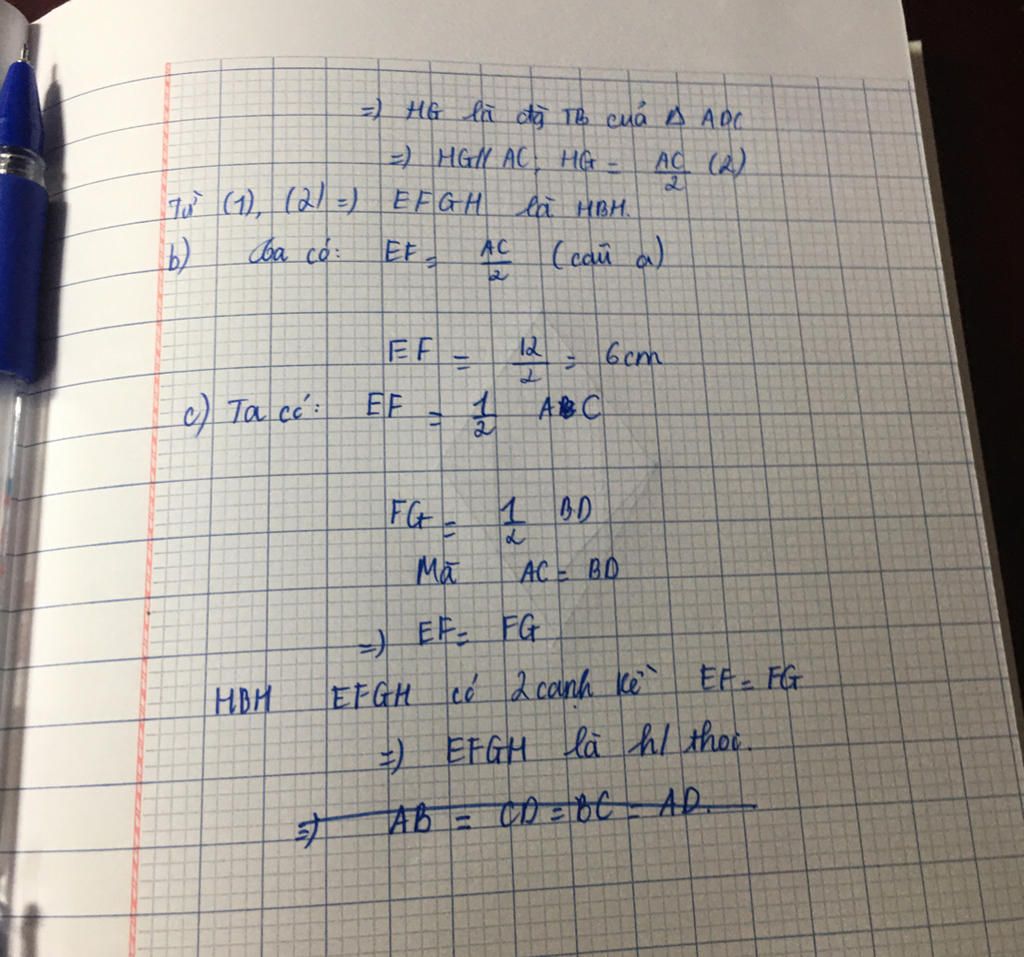 =) HG là đg TB của Δ ADC
=) HG // AC; HG = AC/2 (2)
Từ (1), (2) =) EFGH là HBH.
b) Ta có: EF = AC/2 (câu a)
EF = 12/2 = 6cm
c) Ta có: EF = 1/2 AC
FG = 1/2 BD
Mà AC = BD
=) EF = FG
HBH EFGH có 2 cạnh kề EF = FG
=) EFGH là h/ thoi.
=) AB = CD = BC = AD.